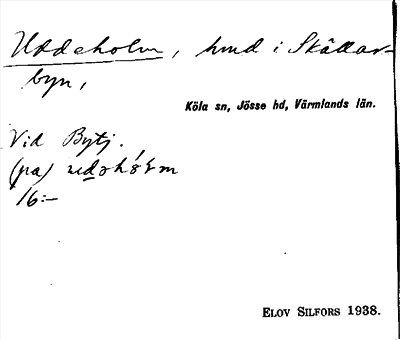 Uddeholm, hmd i Skällar-
byn,
Köla sn, Jösse hd, Värmlands län.
Vid Bytj.
(pa)
16:-
ELOV SILFORS 1938.